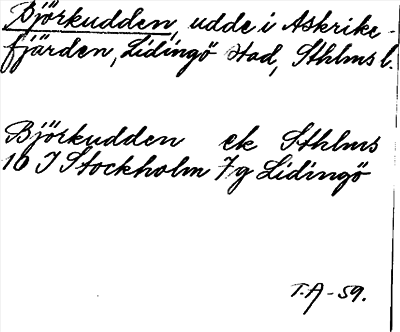 Björkudden, udde i Askrike-
fjärden, Lidingö stad, Sthlms l.
Björkudden ek Sthlms
10 I Stockholm 7g Lidingö
T.A-59.